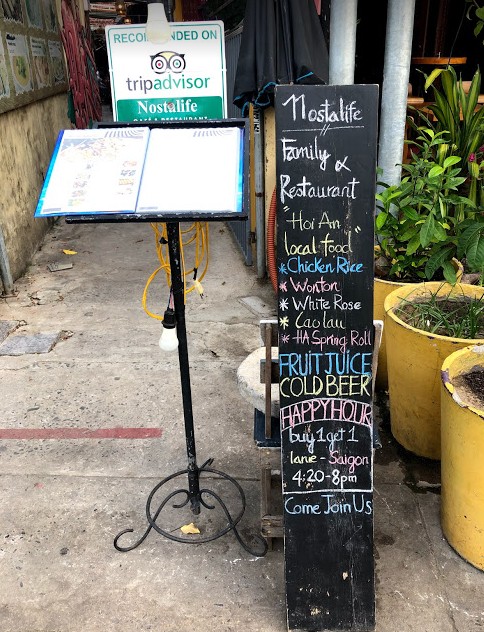 RECOMMENDED ON
tripadvisor
Nostalife
CAFÉ & RESTAURANT
Nostalife
Family &
Restaurant
"Hoi An
local food"
*Chicken Rice
*Wonton
*White Rose
*Cao lau
*HA Spring Roll
FRUIT JUICE
COLD BEER
HAPPY HOUR
buy 1 get 1
larue - Saigon
4:20-8pm
Come Join Us